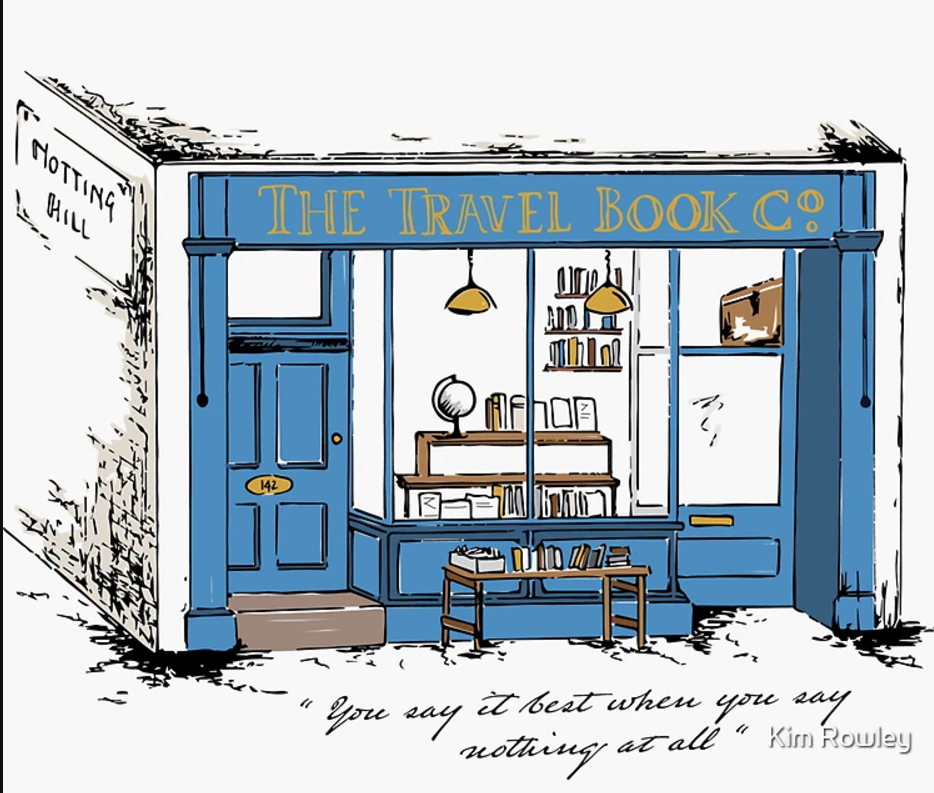 NOTTING
HILL
THE TRAVEL BOOK Cº
142
“ You say it best when you say
nothing at all ”
Kim Rowley